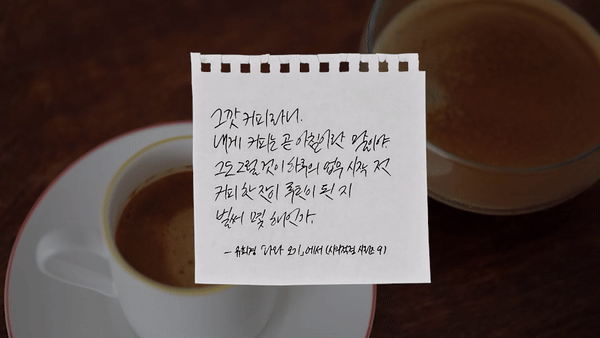 그깟 커피라니.
내게 커피는 곧 아침이란 말이야
그도 그럴 것이 하루의 업무 시작 전
커피 한 잔이 루틴이 된 지
벌써 몇 해인가.
- 유희경 「나와 오기」에서 (시의적절 시리즈 9)